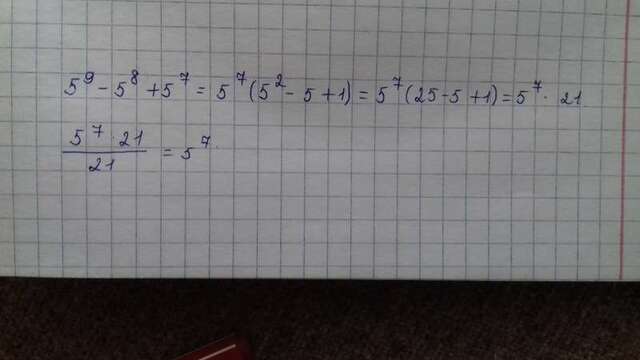 5⁹ - 5⁸ + 5⁷ = 5⁷(5² - 5 + 1) = 5⁷(25 - 5 + 1) = 5⁷ · 21
5⁷ · 21 / 21 = 5⁷.